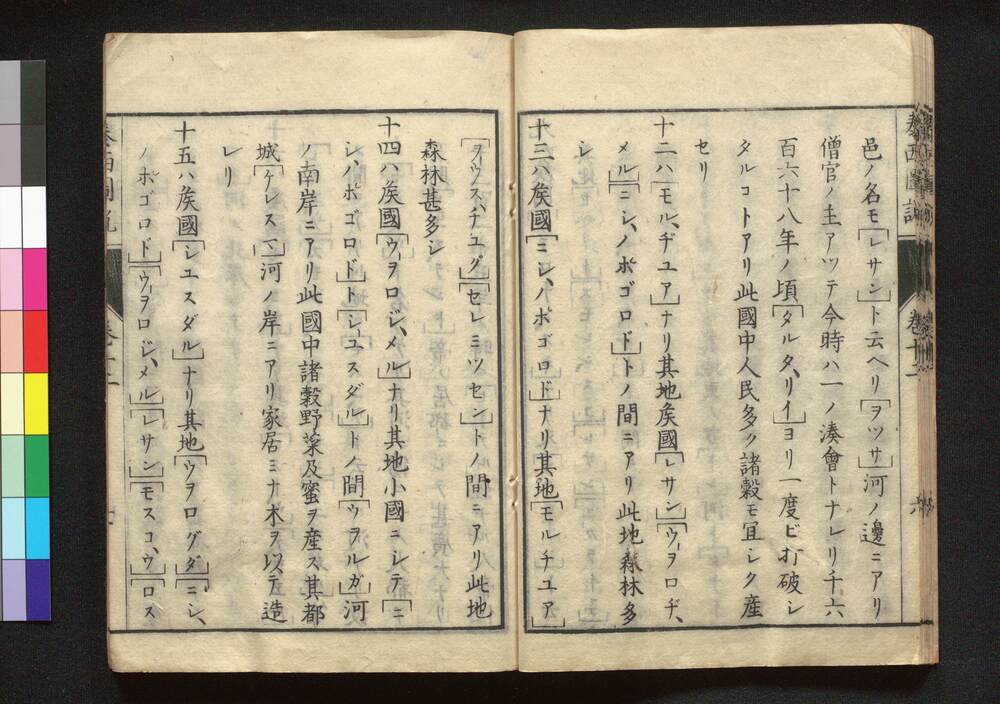 邑ノ名モ「レサン」ト云ヘリ「ヲツサ」河ノ邊ニアリ
僧官ノ主アツテ今時ハ一ノ湊會トナレリ千六
百六十八年ノ頃「タルタ、リイ」ヨリ一度ビ打破シ
タルコトアリ此國中人民多ク諸穀モ冝シク産
セリ
十二ハ「モル、ヂユア」ナリ其地矦國「レサン」「ウ、ヲロヂ、
メル」「ニシ、ノボゴロド」トノ間ニアリ此地森林多
シ
十三ハ矦國「ニシ、ハボゴロド」ナリ其地「モルチユア」
「ヲウス、チユグ」「セレミツセン」トノ間ニアリ此地
森林甚多シ
十四ハ矦國「ウ、ヲロジ、メル」ナリ其地小國ニシテ「ニ
シ、ハボゴロド」ト「シユスダル」トノ間「ウヲルガ」河
ノ南岸ニアリ此國中諸穀野菜及蜜ヲ産ス其都
城「ケレスマ」河ノ岸ニアリ家居ミナ木ヲ以テ造
レリ
十五ハ矦國「シユスダル」ナリ其地「ウヲログダ」「ニシ、
ノボゴロド」「ウ、ヲロジ、メル」「レサン」「モスコ、ウ」「ロス
泰西圖説
卷十二
六